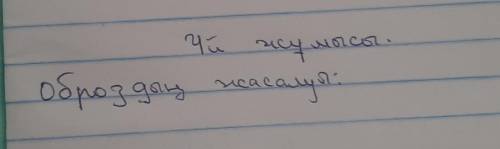 Үй жұмысы.
Оброздың жасалуы: